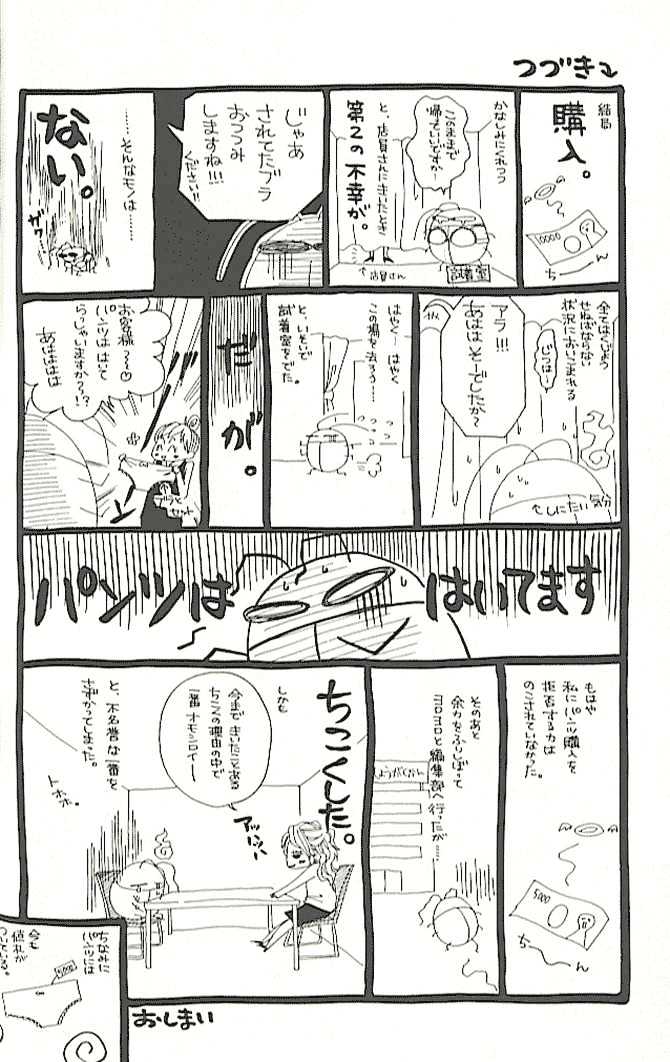 つづき
結局
購入。
10000
ちーん
かなしみにくれつつ
このままで
帰っていいですか
と、店員さんにきいたとき
第2の不幸が。
店員さん
試着室
じゃあ
されてたブラ
おつつみ
しますね!!!
ください!!
……そんなモノは……
ない。
全てはくじょう
せねばならない
状況においこまれる
じつは…
アラ!!!
あははそーでしたか~
しにたい気分
はやく… はやく
この場を去ろう……
と、いそいで
試着室をでた。
だが。
お客様~~♡
パンツははいて
らっしゃいますかーっ!?
あははははは
パンツは
はいてます
もはや
私にパンツ購入を
拒否する力は
のこされていなかった。
5000
ちーん
そのあと
余力をふりしぼって
ヨロヨロと編集部へ行ったが……
しょうがくかん
ちこくした。
しかも
今まできいたことある
ちこくの理由の中で
一番オモシロイー
アッハッハ
と、不名誉な一番を
さずかってしまった。
トホホ。
ちなみに
パンツには
今も
値札が
ついている。
5000
おしまい